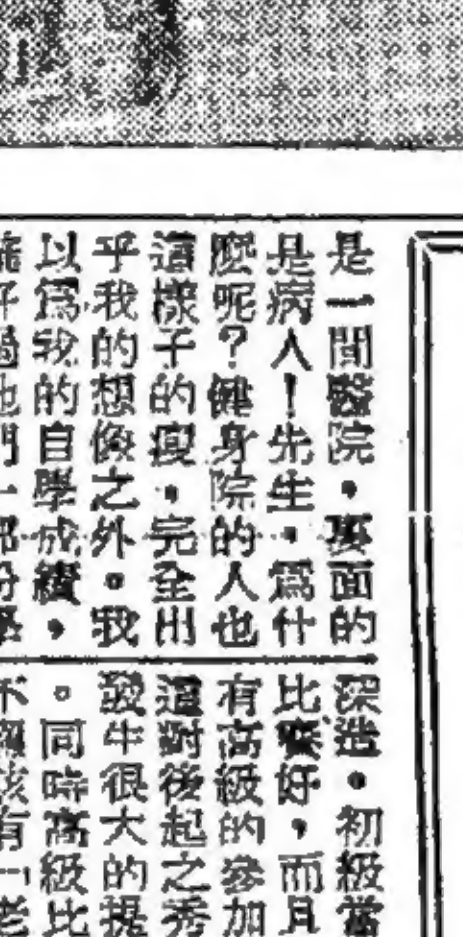 是一間醫院,裏面的
是病人!先生,爲什
麽呢?健身院的人也
這樣子的瘦,完全出
乎我的想像之外。我
以爲我的自學成績,
好過他們一部份
深造。初級當
比賽好,而且
有高級的參加
這對後起之秀
發生很大的提
。同時高級比
不應該有一老